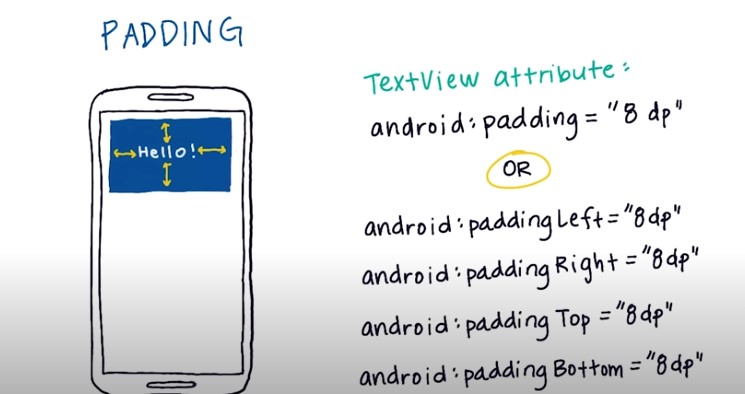 PADDING
Hello!
TextView attribute:
android:padding = "8 dp"
OR
android:paddingLeft="8dp"
android:padding Right = "8dp"
android:padding Top = "8dp"
android:padding Bottom = "8dp"